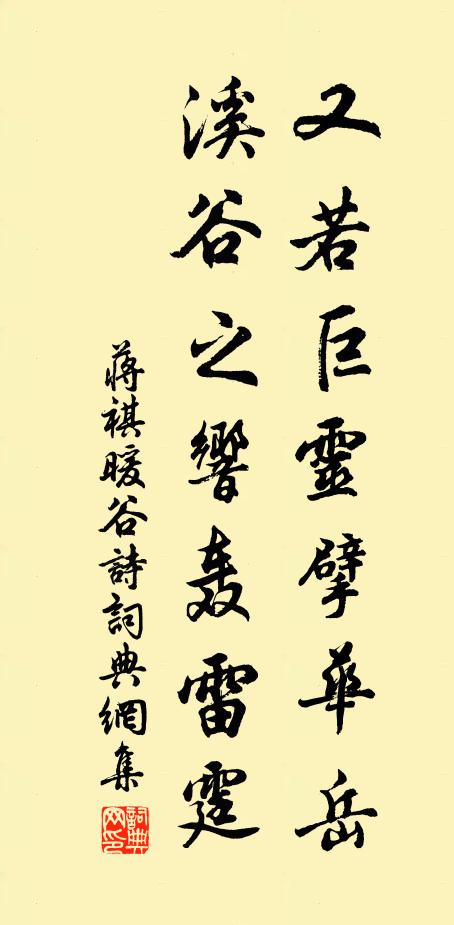 又若巨靈擘華岳
溪谷之響轰雷霆
蔣祺暖谷詩詞典網集
詞典网印